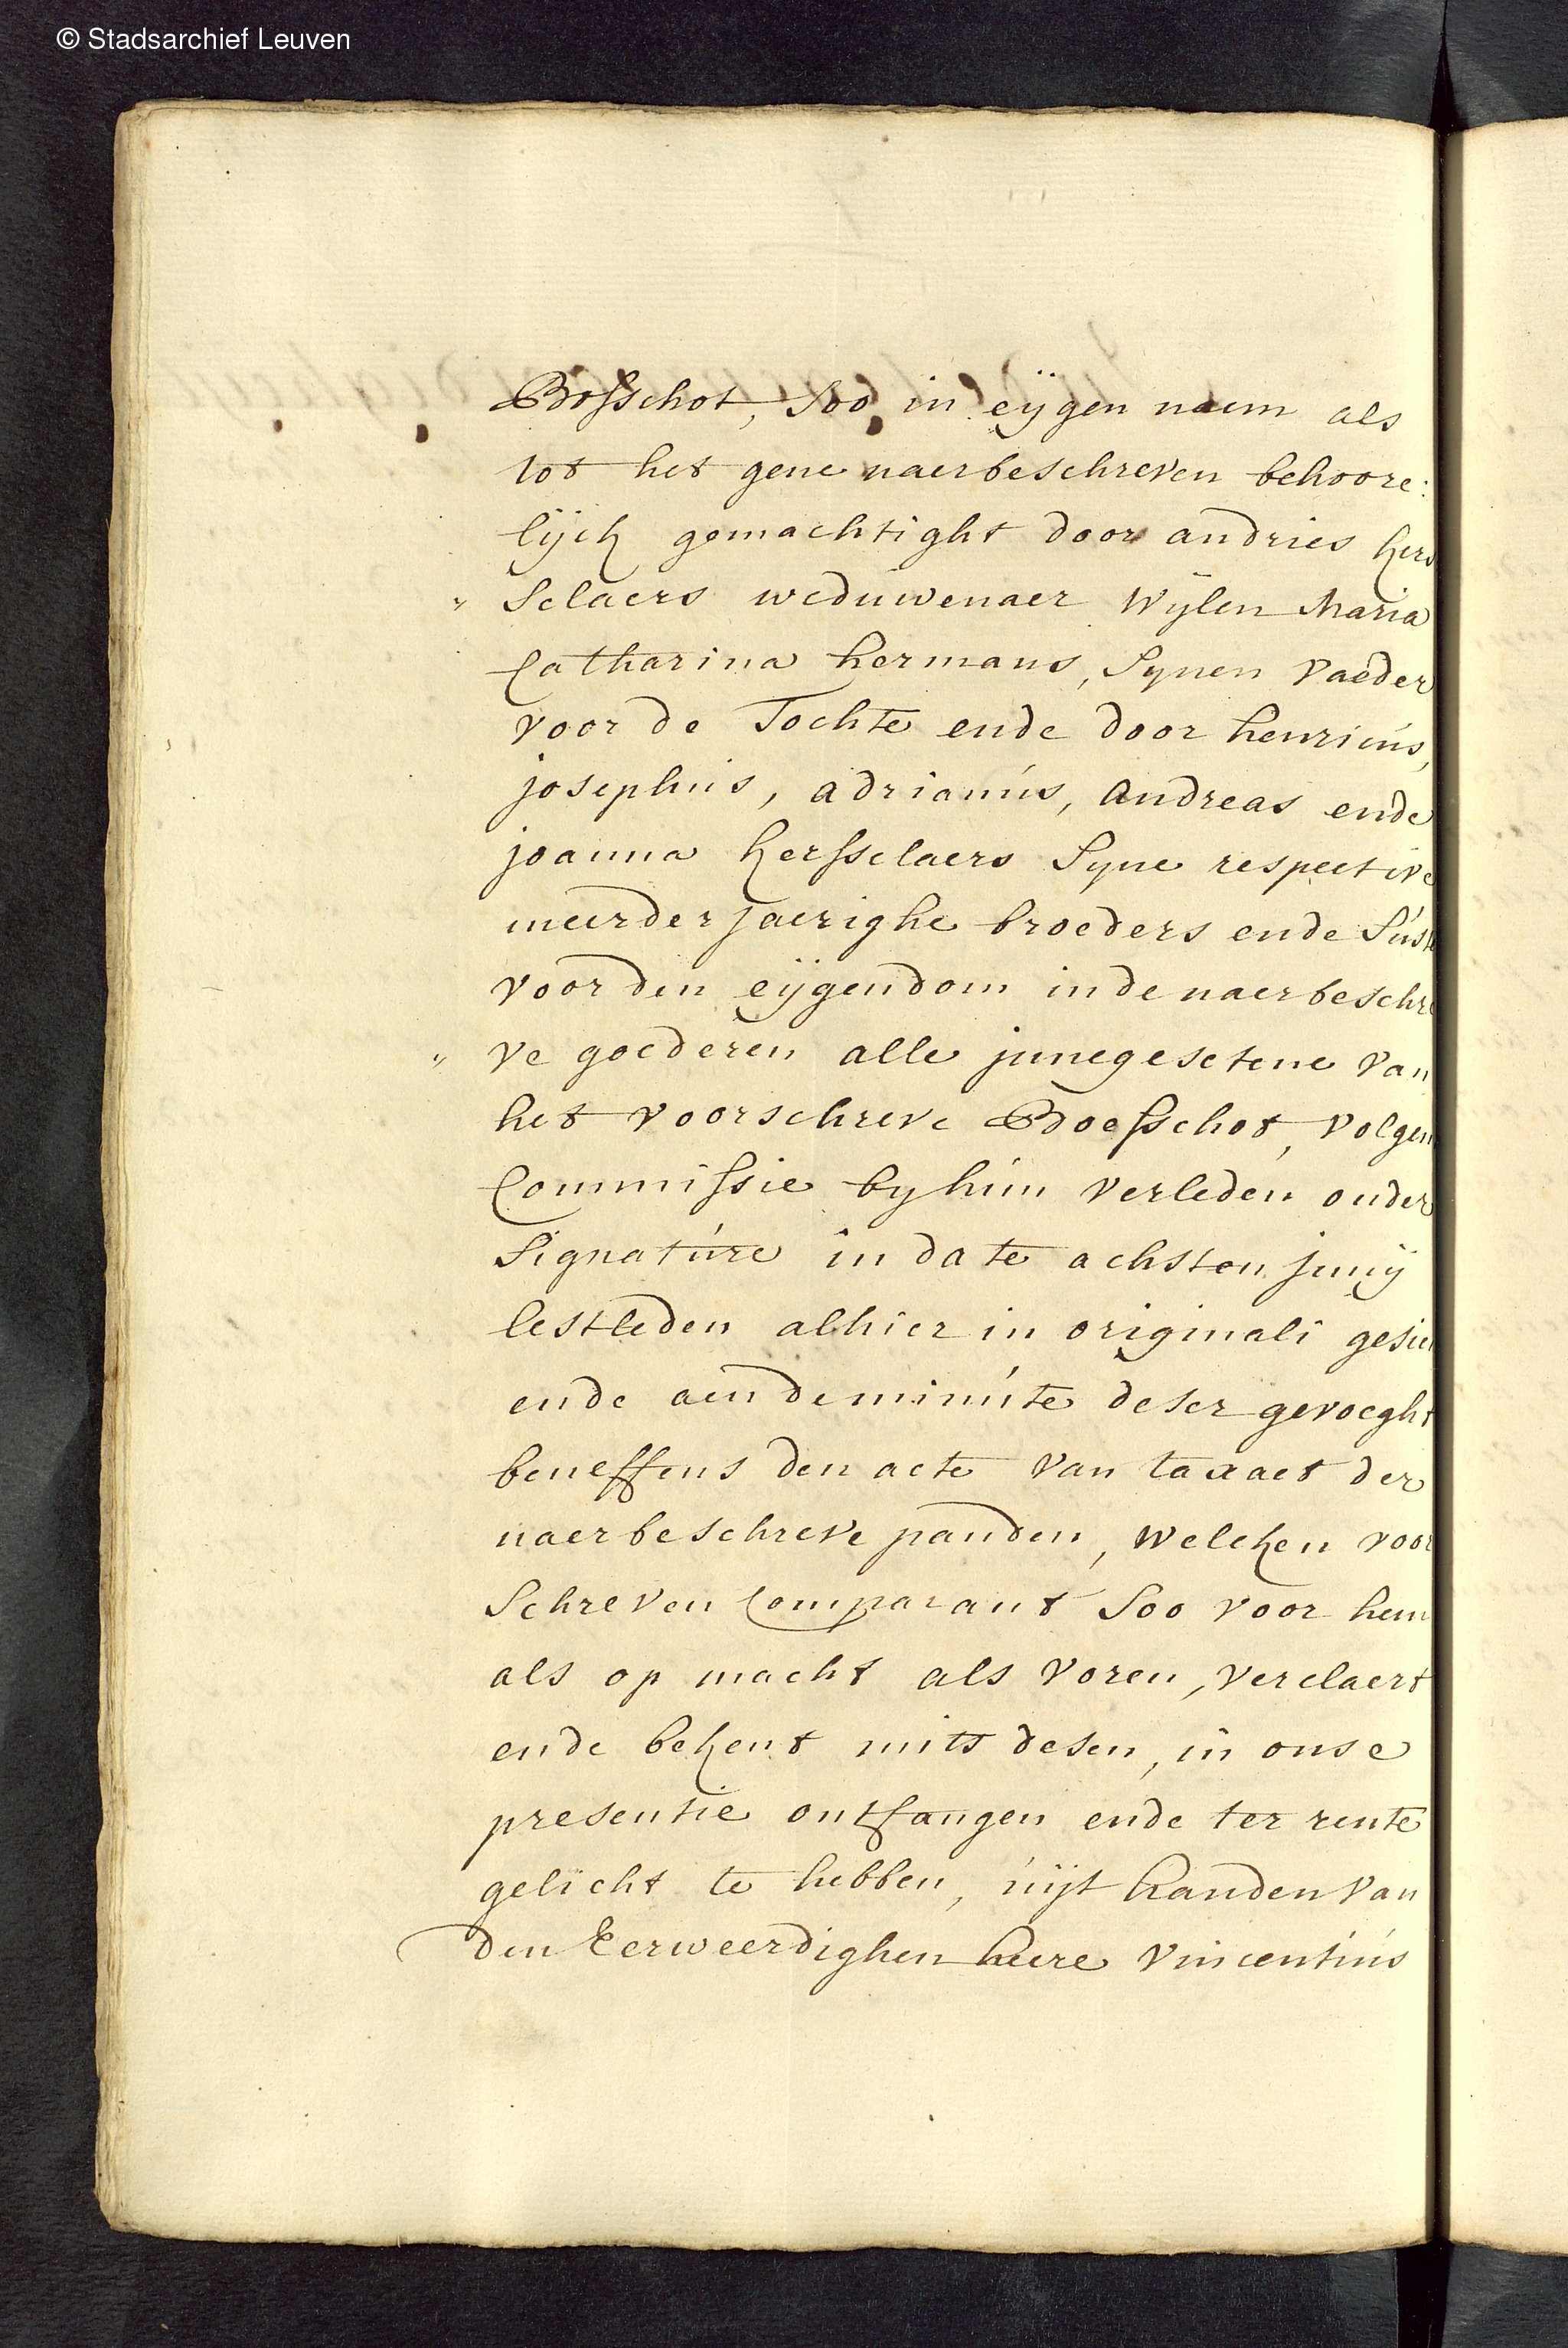 © Stadsarchief Leuven
Bosschot, Soo in eijgen naem als
tot het gene naerbeschreven behoore:
lijck gemachtight door andries Kers
" Selaers weduwenaer Wijlen Maria
Catharina hermans, Synen Vaeder
voor de Tochte ende door henricus,
josephus, adrianus, andreas ende
joanna Kersselaers Syne respective
meerderjaerighe broeders ende Suste
voor den eijgendom in de naerbeschre
" ve goederen alle jnnegesetene Van
het voorschreve Boesschot, volgen
Commissie by hun verleden onder
Signature in date achsten junij
lestleden alhier in originali gesien
ende aen de minute deser gevoeght
beneffens den acte van taxaet der
naerbeschreve panden, welcken voor
Schreven Comparant Soo voor hem
als op macht als voren, verclaert
ende bekent mits desen, in onse
presentie ontfangen ende ter rente
gelicht te hebben, uijt handen van
den Eerweerdighen heere Vincentius